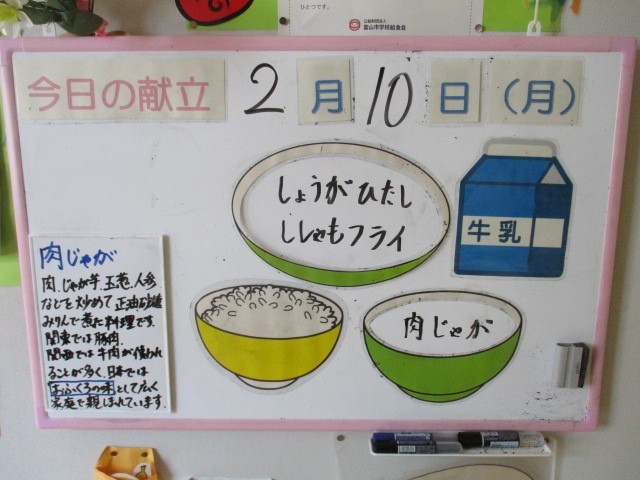 ひとつです。
公益財団法人
富山市学校給食会
今日の献立 2月10日（月）
しょうがひたし
ししゃもフライ
牛乳
肉じゃが
肉じゃが
肉、じゃが芋、玉葱、人参
などを炒めて正油、砂糖
みりんで煮た料理です。
関東では豚肉、
関西では牛肉が使われ
ることが多く、日本では
おふくろの味として広く
家庭で親しまれています。